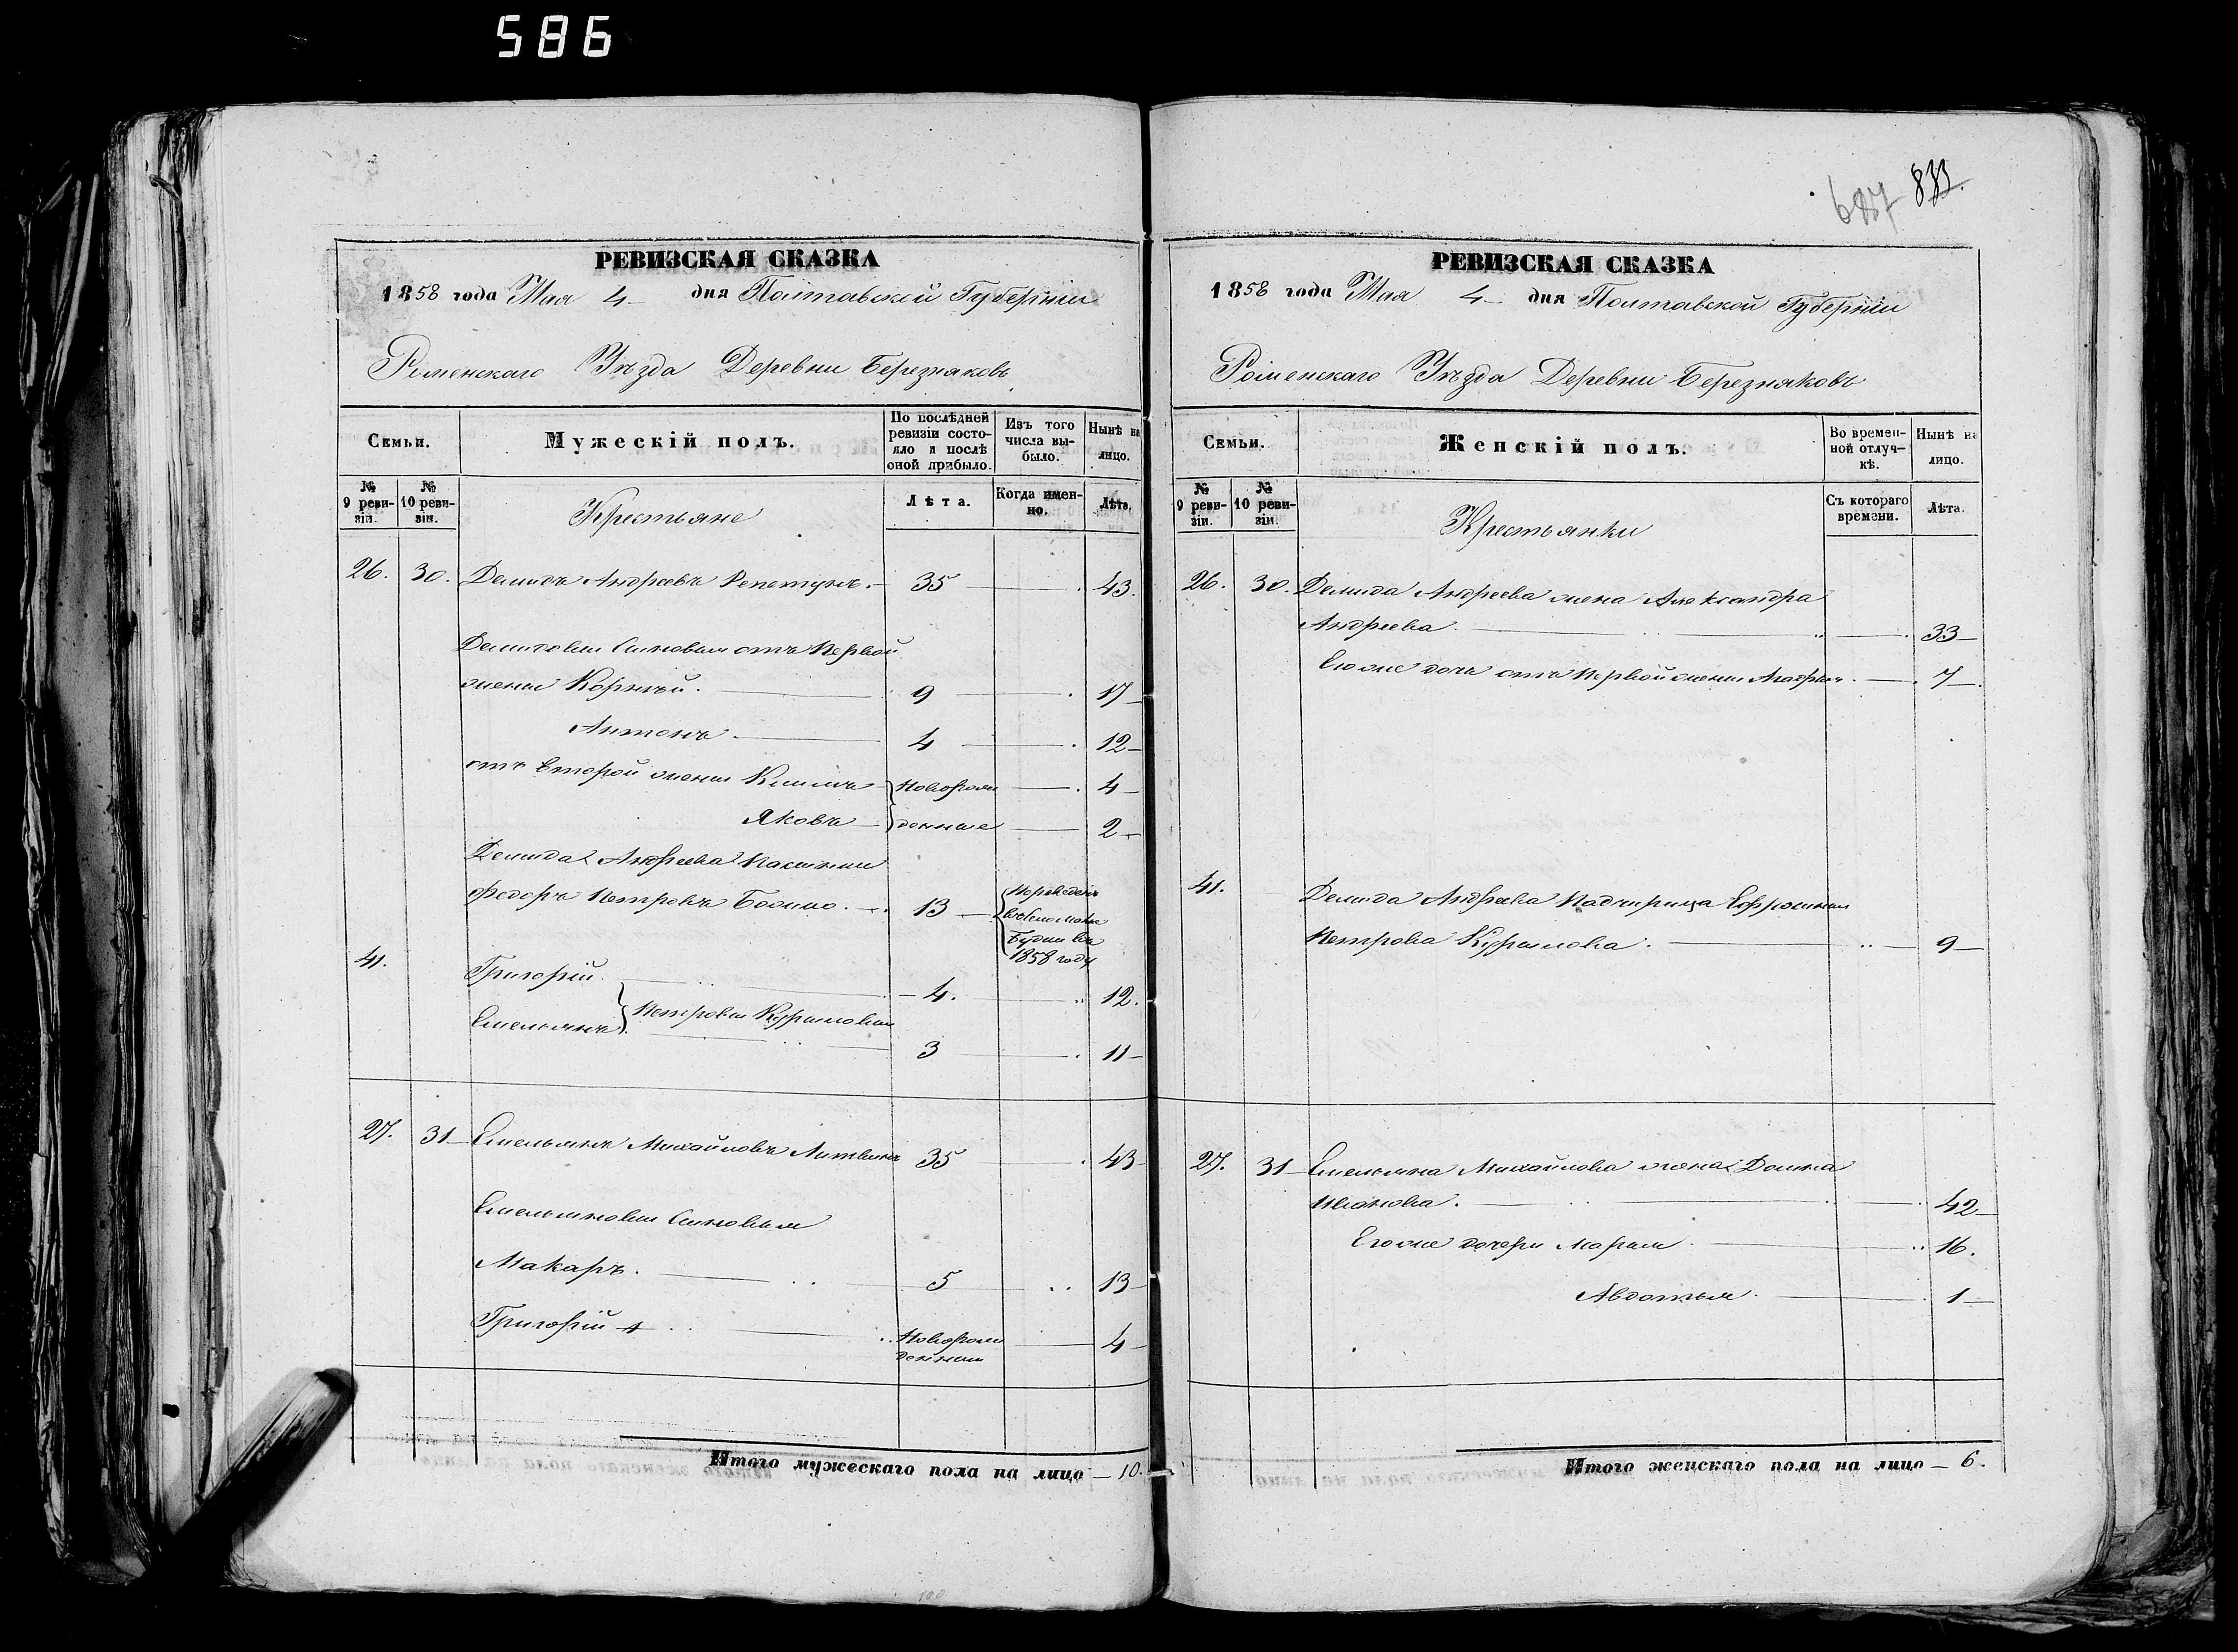 586
687 833.
РЕВИЗСКАЯ СКАЗКА
1858 года Мая 4 дня Полтавской Губерніи
Роменскаго Уѣзда Деревни Березняковъ
Семьи.
Мужескій полъ.
По послѣдней ревизіи состояло и послѣ оной прибыло.
Изъ того числа выбыло.
Нынѣ на лицо.
№ 9 ревизіи.
№ 10 ревизіи.
Крестьяне
Лѣта.
Когда именно.
Лѣта.
26. 30. Демидъ Андреевъ Репетунъ. 35 43.
Демидовы Сыновья отъ Первой
жены Корнѣй. 9 17
Антонъ 4 12
отъ Второй жены Климъ Новорож 4
Яковъ денные 2
Демида Андреева Пасынки
Федоръ Петровъ 13 Переведенъ
во
Будки въ
1858 году
41. Григорій 4. 12.
Емельянъ Петровы Куриловы 3 11
27. 31 Емельянъ Михайловъ Литвинъ 35 43
Емельяновы Сыновья
Макаръ. 5 13
Григорій Новорож 4
денный
Итого мужескаго пола на лицо 10.
РЕВИЗСКАЯ СКАЗКА
1858 года Мая 4 дня Полтавской Губерніи
Роменскаго Уѣзда Деревни Березняковъ
Семьи.
Женскій полъ.
Во временной отлучкѣ.
Нынѣ на лицо.
№ 9 ревизіи.
№ 10 ревизіи.
Крестьянки
Съ котораго времени.
Лѣта.
26. 30. Демида Андреева жена Александра
Андреева 33
Его же дочь отъ Первой жены 7
41. Демида Андреева Падчирица Ефросинья
Петрова Курилова. 9
27. 31 Емельяна Михайлова жена Домна
Иванова. 42
Его же дочери Марья 16.
Авдотья. 1
Итого женскаго пола на лицо 6.